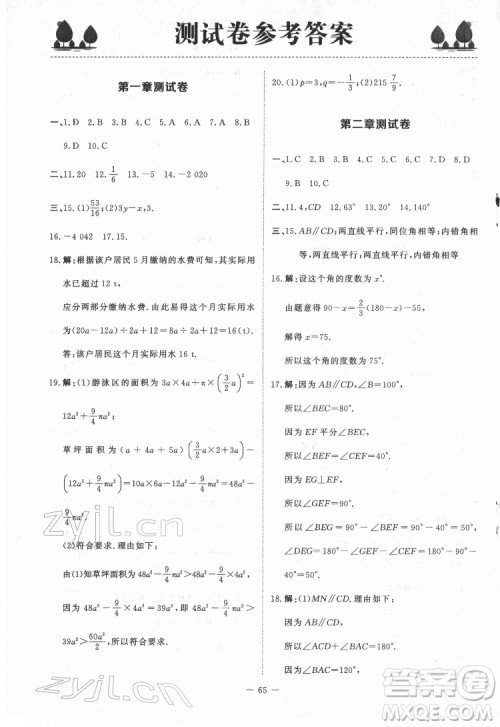 测试卷参考答案
第一章测试卷
一、1. D 2. B 3. B 4. C 5. D 6. D 7. B 8. B
9. D 10. C
二、11. 20 12. 1/6 13. -5 14. 9
三、15. (1) 53/16; (2) 3y-x.
16. -4 042 17. 15.
18. 解: 根据该户居民 5 月缴纳的水费可知, 实际用
水已超过 12 t,
应分两部分缴纳水费. 由此易得实际用水
为 (20a-12a)÷2a+12=16(t),
所以, 该户居民这个月实际用水 16 t.
19. 解: (1) 游泳区的面积为 3a×4a+π(3/2 a)²=
12a²+9/4 πa²,
草坪面积为 (a+4a+5a)(3/2 a×2+3a)
-(12a²+9/4 πa²)=60a²-12a²-9/4 πa²=48a²-
9/4 πa².
(2) 符合要求. 理由如下:
由(1)知草坪面积为 48a²-9/4 πa²>48a²-9a²>
39a²>60a²/2>30a²,
20. (1) p=3, q=-1/3; (2) 215 7/9.
第二章测试卷
一、1. C 2. B 3. D 4. C 5. D 6. B 7. C 8. B
9. D 10. C
二、11. 4, CD 12. 63° 13. 20° 14. 140°
三、15. AB∥CD; 两直线平行, 同位角相等; 内错角相
等, 两直线平行; 两直线平行, 内错角相等
16. 解: 设这个角的度数为 x°.
由题意得 90-x=2/7(180-x)-15,
解得 x=75.
所以这个角的度数为 75°.
17. 解: 因为 AB∥CD,
所以∠BEC=80°.
因为 EF 平分∠BEC,
所以∠BEF=∠CEF=40°.
因为 EG⊥EF,
所以∠GEF=90°,
所以∠BEG=90°-∠BEF=50°,
所以∠DEG=180°-90°-40°=50°.
18. 解: (1) MN∥CD. 理由如下:
因为 AB∥CD,
所以∠ABC=∠BCD=60°.
又因为∠BCN+∠DCN=∠BCD, ∠DCN=20°,
所以∠BCN=40°,
— 65 —
zyjl.cn
zyjl.cn
答案圈
MXQE.COM